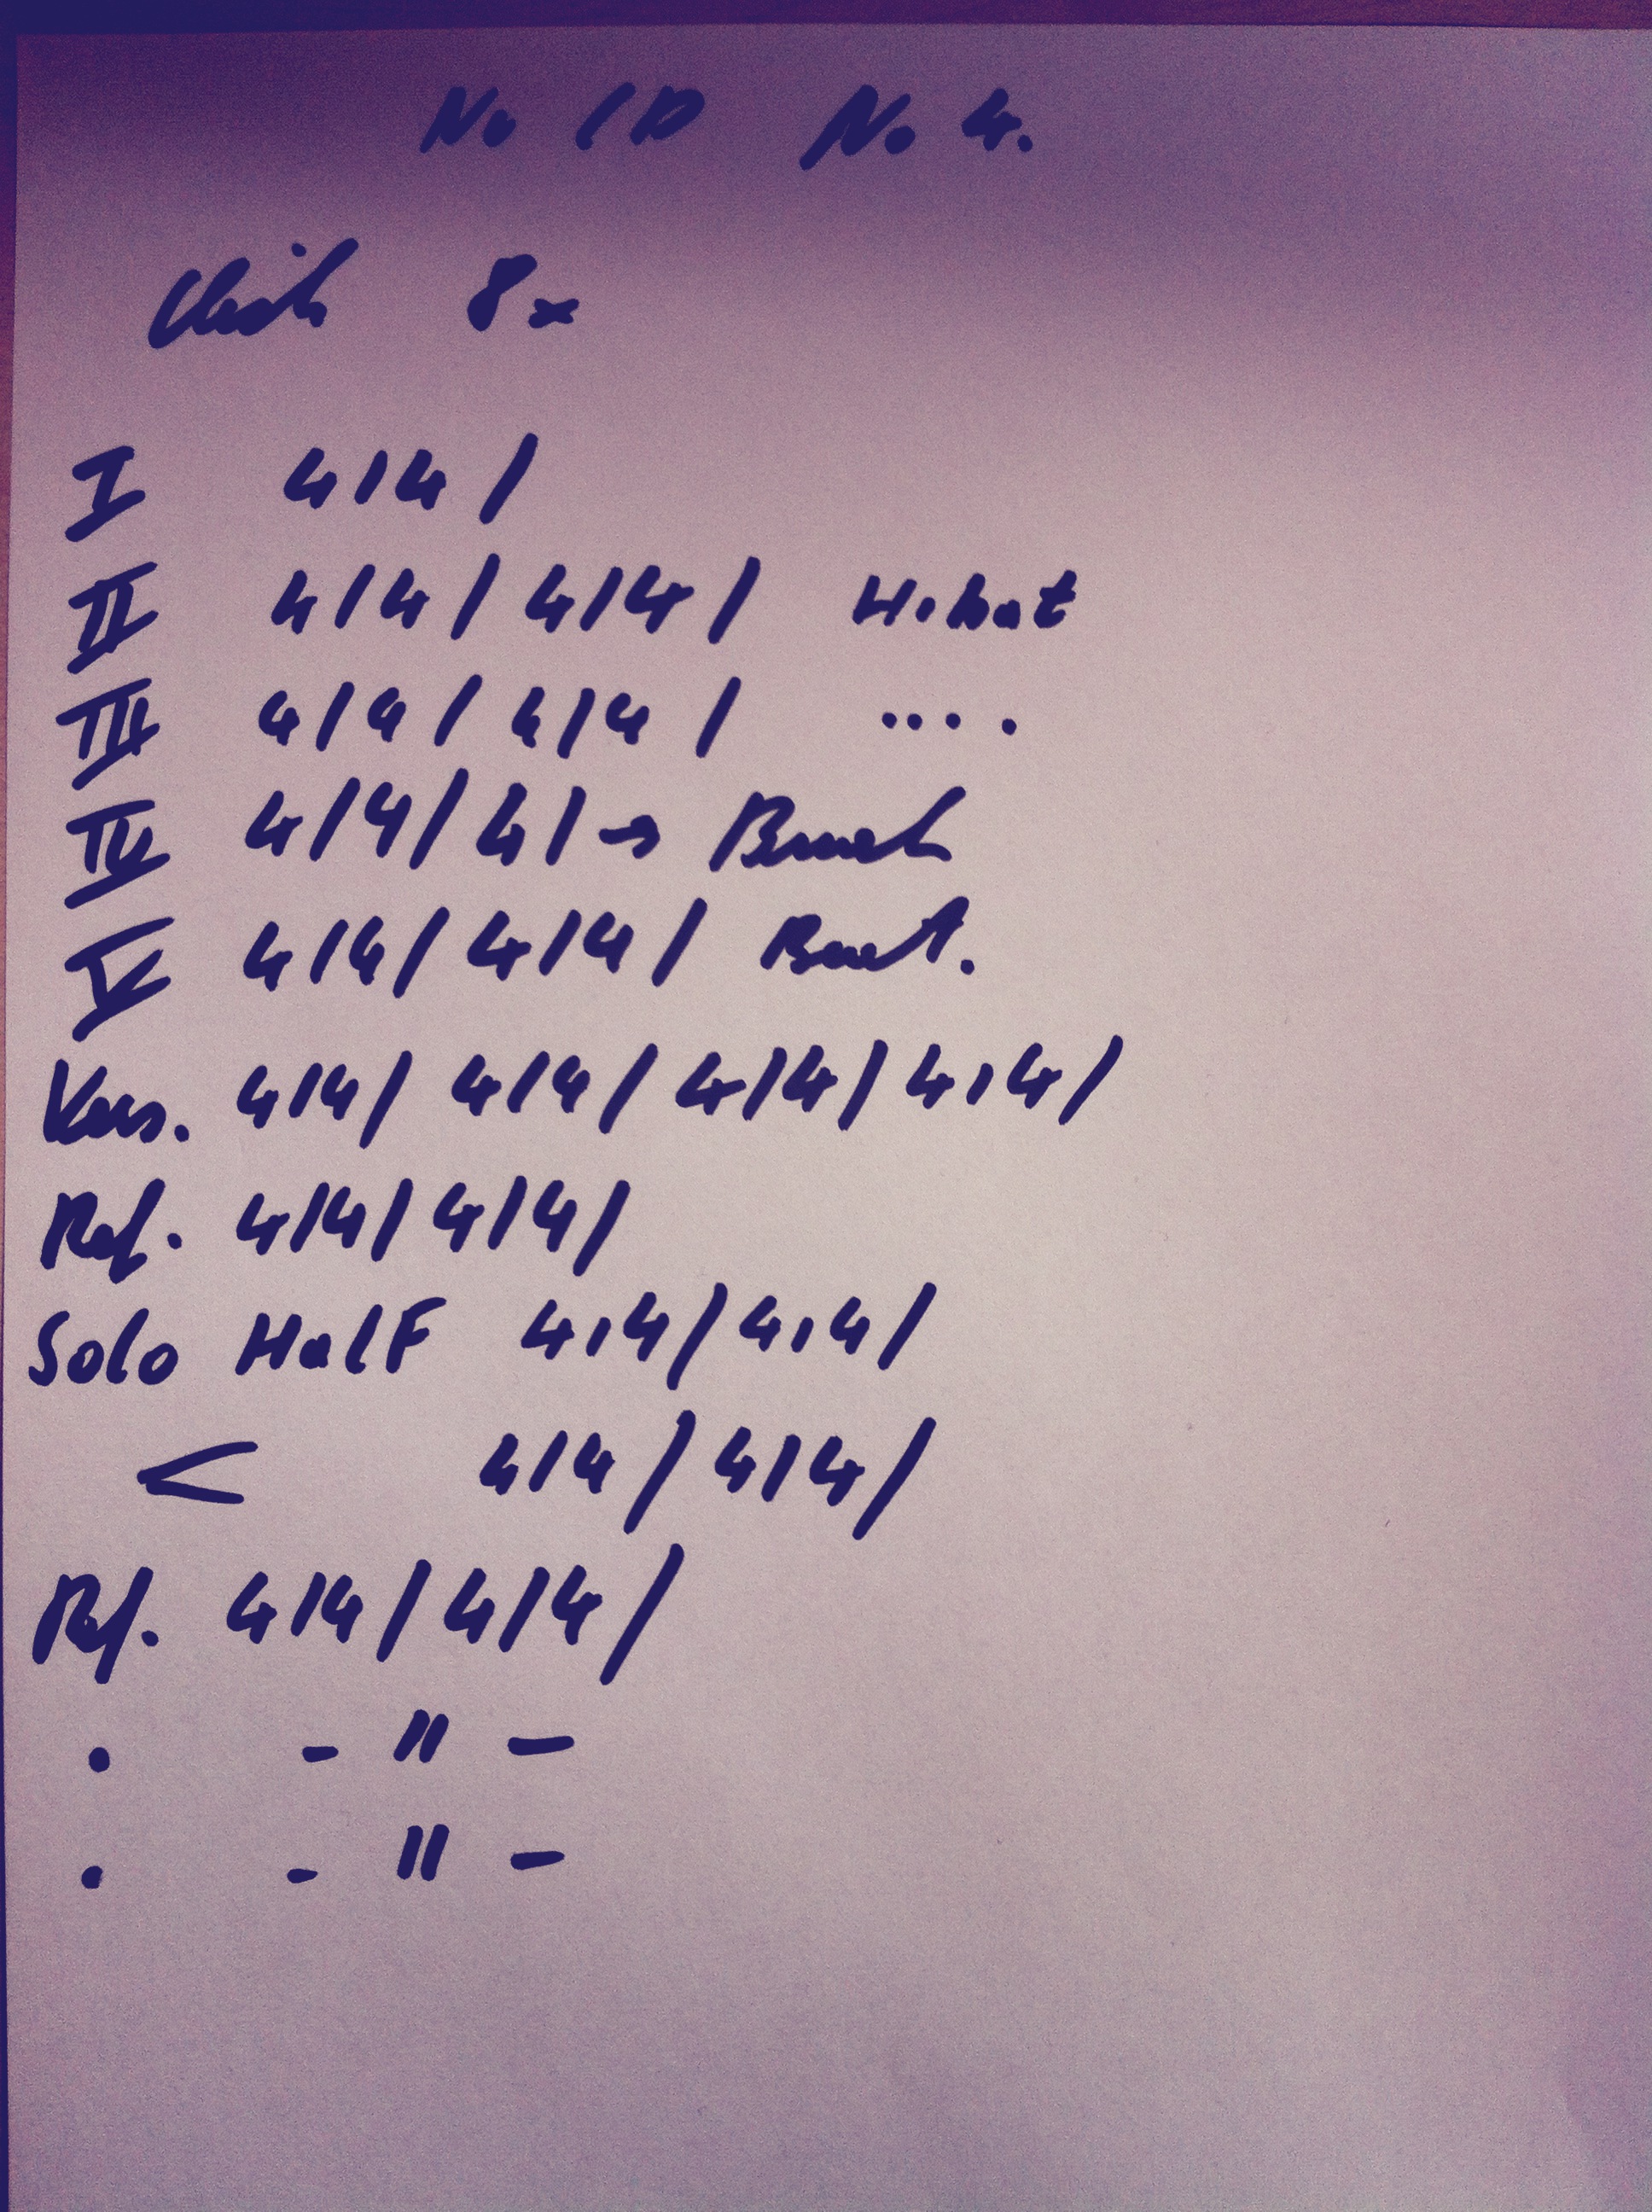 No ID No 4.
Click 8x
I 4/4/
II 4/4/4/4/ Hihat
III 4/4/4/4/ ....
IV 4/4/4/→
V 4/4/4/4/
Vers. 4/4/4/4/4/4/4/4/
Ref. 4/4/4/4/
Solo HalF 4/4/4/4/
< 4/4/4/4/
Ref. 4/4/4/4/
. - " -
. - " -